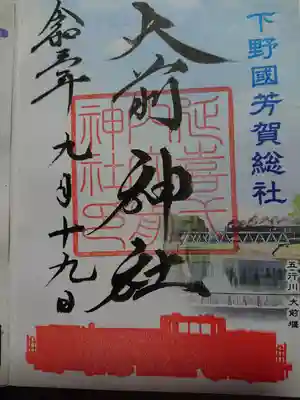 下野國芳賀総社
五行川 大前堰
大前神社
延喜式
内大前
神社印
令和三年 九月十九日